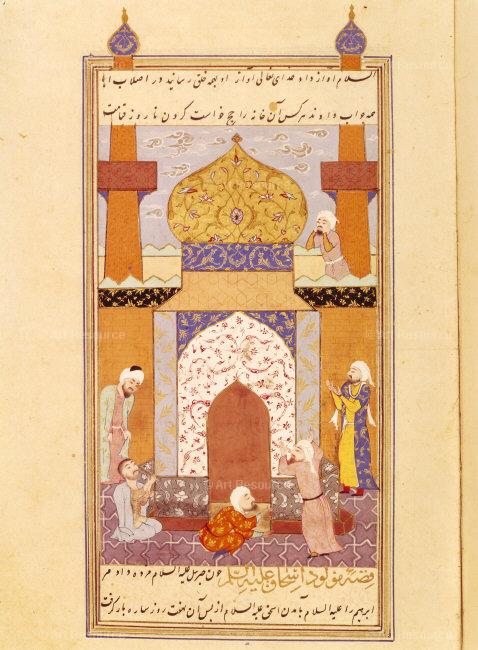 السلام آواز داد خدای تعالی آواز او بهمه خلق رسانید در اصلاب آبا
همه جواب دادند هر کس آن خانه را حج خواست کردن تا روز قیامت
قصه مولود اسحاق علیه السلم
چون جبرئیل علیه السلام مژده داد مر
ابرهیم را علیه السلام بآمدن اسحق علیه السلام از پس آن بهفت روز ساره بار گرفت
© Art Resource